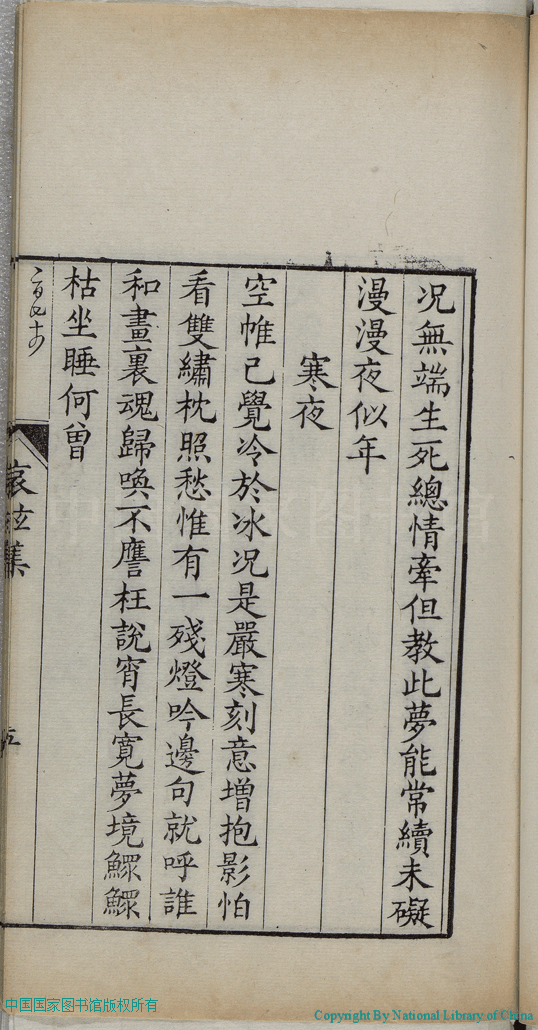 况無端生死總情牽但教此夢能常續未礙
漫漫夜似年
寒夜
空帷已覺冷於冰况是嚴寒刻意增抱影怕
看雙繡枕照愁惟有一殘燈吟邊句就呼誰
和畫裏魂歸喚不譍枉說宵長寬夢境鰥鰥
枯坐睡何曾
哀
集
中国国家图书馆版权所有
Copyright By National Library of China